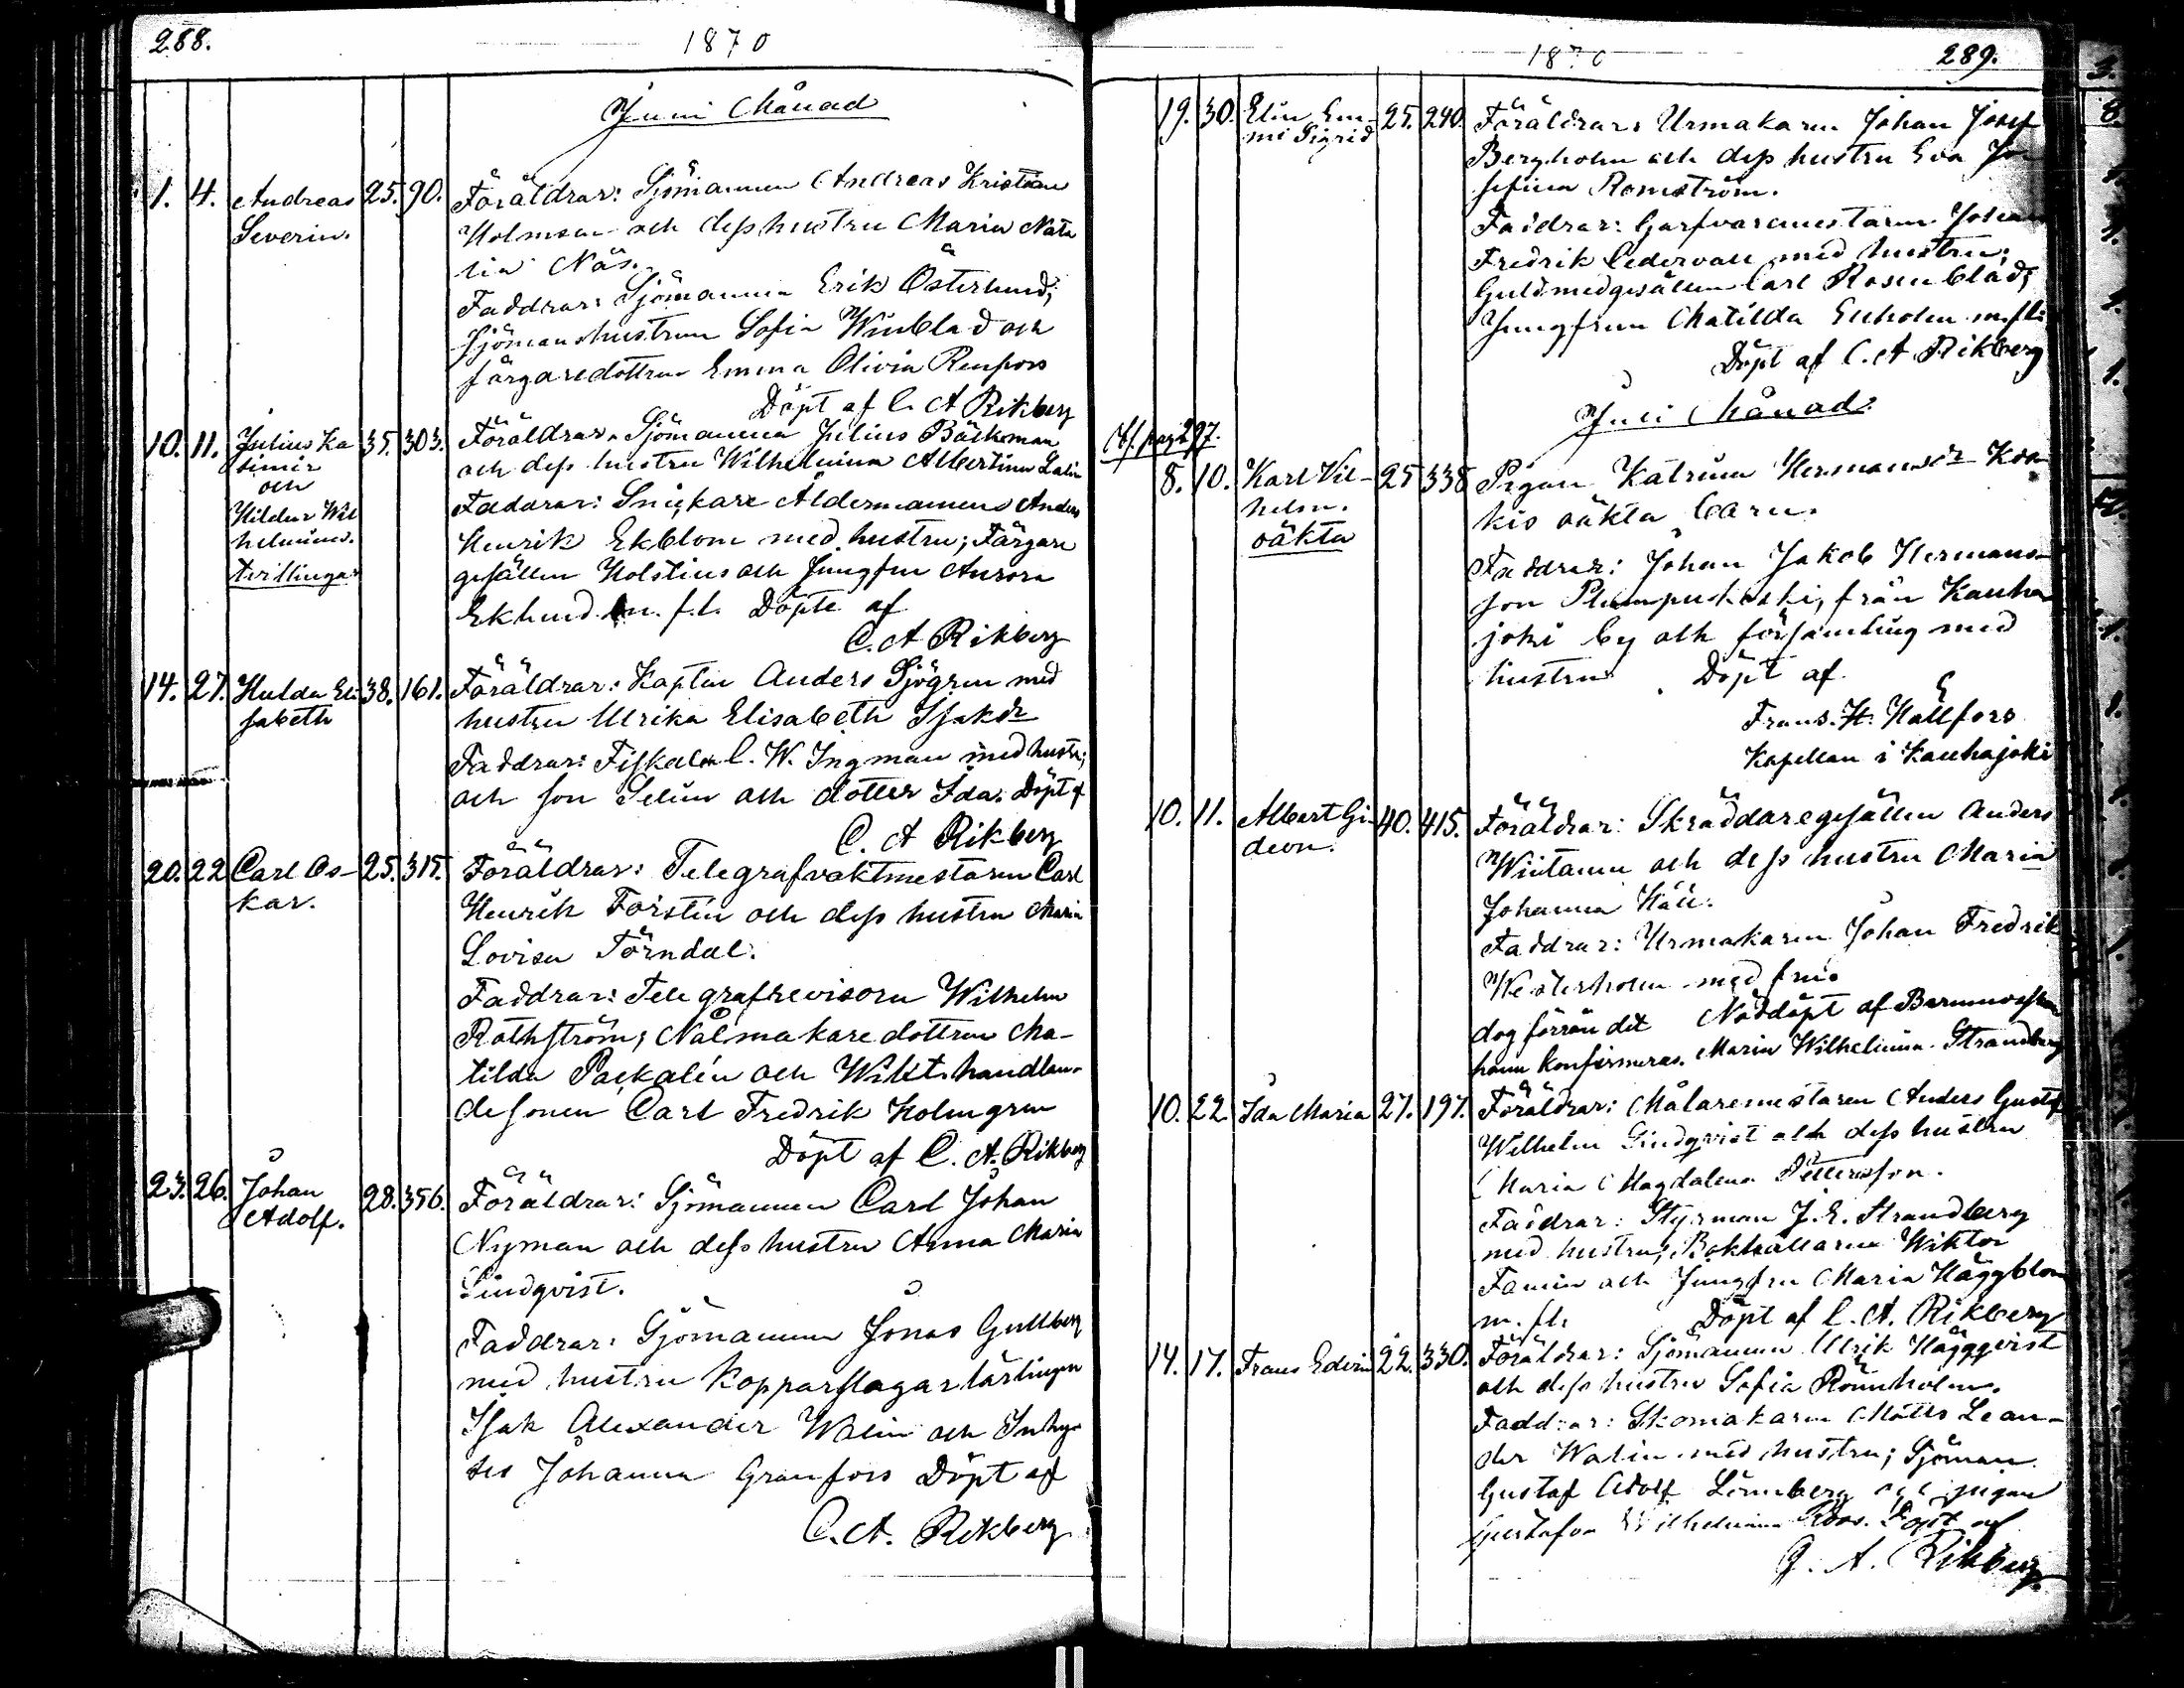 288.
1870
Juni Månad
1. 4. Andreas Severin. 25. 90. Föräldrar: Sjömannen Andreas Kristian
Holmsen och dess hustru Maria Nata
lia Näs.
Faddrar: Sjömannen Erik Österlund;
Sjömanshustrun Sofia Winblad och
färgaredottren Emma Olivia Renfors
Döpt af C. A Rikberg
10. 11. Julius Ka
simir
och
Hildur Wil
helmina.
tvillingar
35. 303. Föräldrar: Sjömannen Julius Bäckman
och dess hustru Wilhelmina Albertina
Faddrar: Snickare Åldermannen Anders
Henrik Ekblom med hustru; Färgare
gesällen Holstius och Jungfru Aurora
Eklund m. fl. Döpte af
C. A Rikberg
14. 27. Hulda Eli
sabeth
38. 161. Föräldrar: Kapten Anders Sjögren med
hustru Ulrika Elisabeth Isaksdr
Faddrar: Fiskalen C. W. Ingman med hustru;
och son Selim och dotter Ida. Döpt af
C. A Rikberg
20. 22 Carl Os-
kar.
25. 315. Föräldrar: Telegrafvaktmestaren Carl
Henrik Forstén och dess hustru Maria
Lovisa Törndal.
Faddrar: Telegrafrevisorn Wilhelm
Rothström; Nålmakaredottren Ma-
tilda Packalén och Wikt. handlan-
desonen Carl Fredrik Holmgren
Döpt af C. A. Rikberg
23. 26. Johan
Adolf.
28. 356. Föräldrar: Sjömannen Carl Johan
Nyman och dess hustru Anna Maria
Lindqvist.
Faddrar: Sjömannen Jonas Gullberg
med hustru Kopparslagarlärlingen
Isak Alexander Walin och Inhy-
ses Johanna Granfors Döpt af
C. A. Rikberg
1870
289.
19. 30. Elin Em-
mi Sigrid
25. 240. Föräldrar: Urmakaren Johan Josef
Bergholm och dess hustru Eva Jo
sefina Romström.
Faddrar: Garfvaremestaren Johan
Fredrik Cedervall med hustru;
Guldsmedgesällen Carl Rosenblad;
Jungfrun Matilda Enholm m. fl.
Döpt af C. A Rikberg
Juli Månad.
Jf. pag 297.
8. 10. Karl Vil-
helm.
oäkta
25 338 Pigan Katrina Hermansdr Kos
kis oäkta barn.
Faddrar: Johan Jakob Hermans-
son Plumpukoski, från Kauha
joki by och församling med
hustru Döpt af
Frans. H. Hällfors
Kapellan i Kauhajoki
10. 11. Albert Gi-
deon.
40. 415. Föräldrar: Skräddaregesällen Anders
Wiitanen och dess hustru Maria
Johanna Häll.
Faddrar: Urmakaren Johan Fredrik
Westerholm med fru.
dog förrän det Nöddöpt af Barnmorskan
hann konfirmeras. Maria Wilhelmina Strandberg
10. 22. Ida Maria 27. 197. Föräldrar: Målaremestaren Anders Gustaf
Wilhelm Lindqvist och dess hustru
Maria Magdalena Pettersson.
Faddrar: Styrman J. E. Strandberg
med hustru; Bokhållaren Wiktor
Famin och Jungfru Maria Häggblom
m. fl. Döpt af C. A. Rikberg
14. 17. Frans Edvin 22. 330. Föräldrar: Sjömannen Ulrik Häggqvist
och dess hustru Sofia Rönnholm.
Faddrar: Skomakaren Matts Lean-
der Walin med hustru; Sjöman
Gustaf Adolf Lönnberg och pigan
Gustafva Wilhelmina Roos. Döpt af
C. A. Rikberg